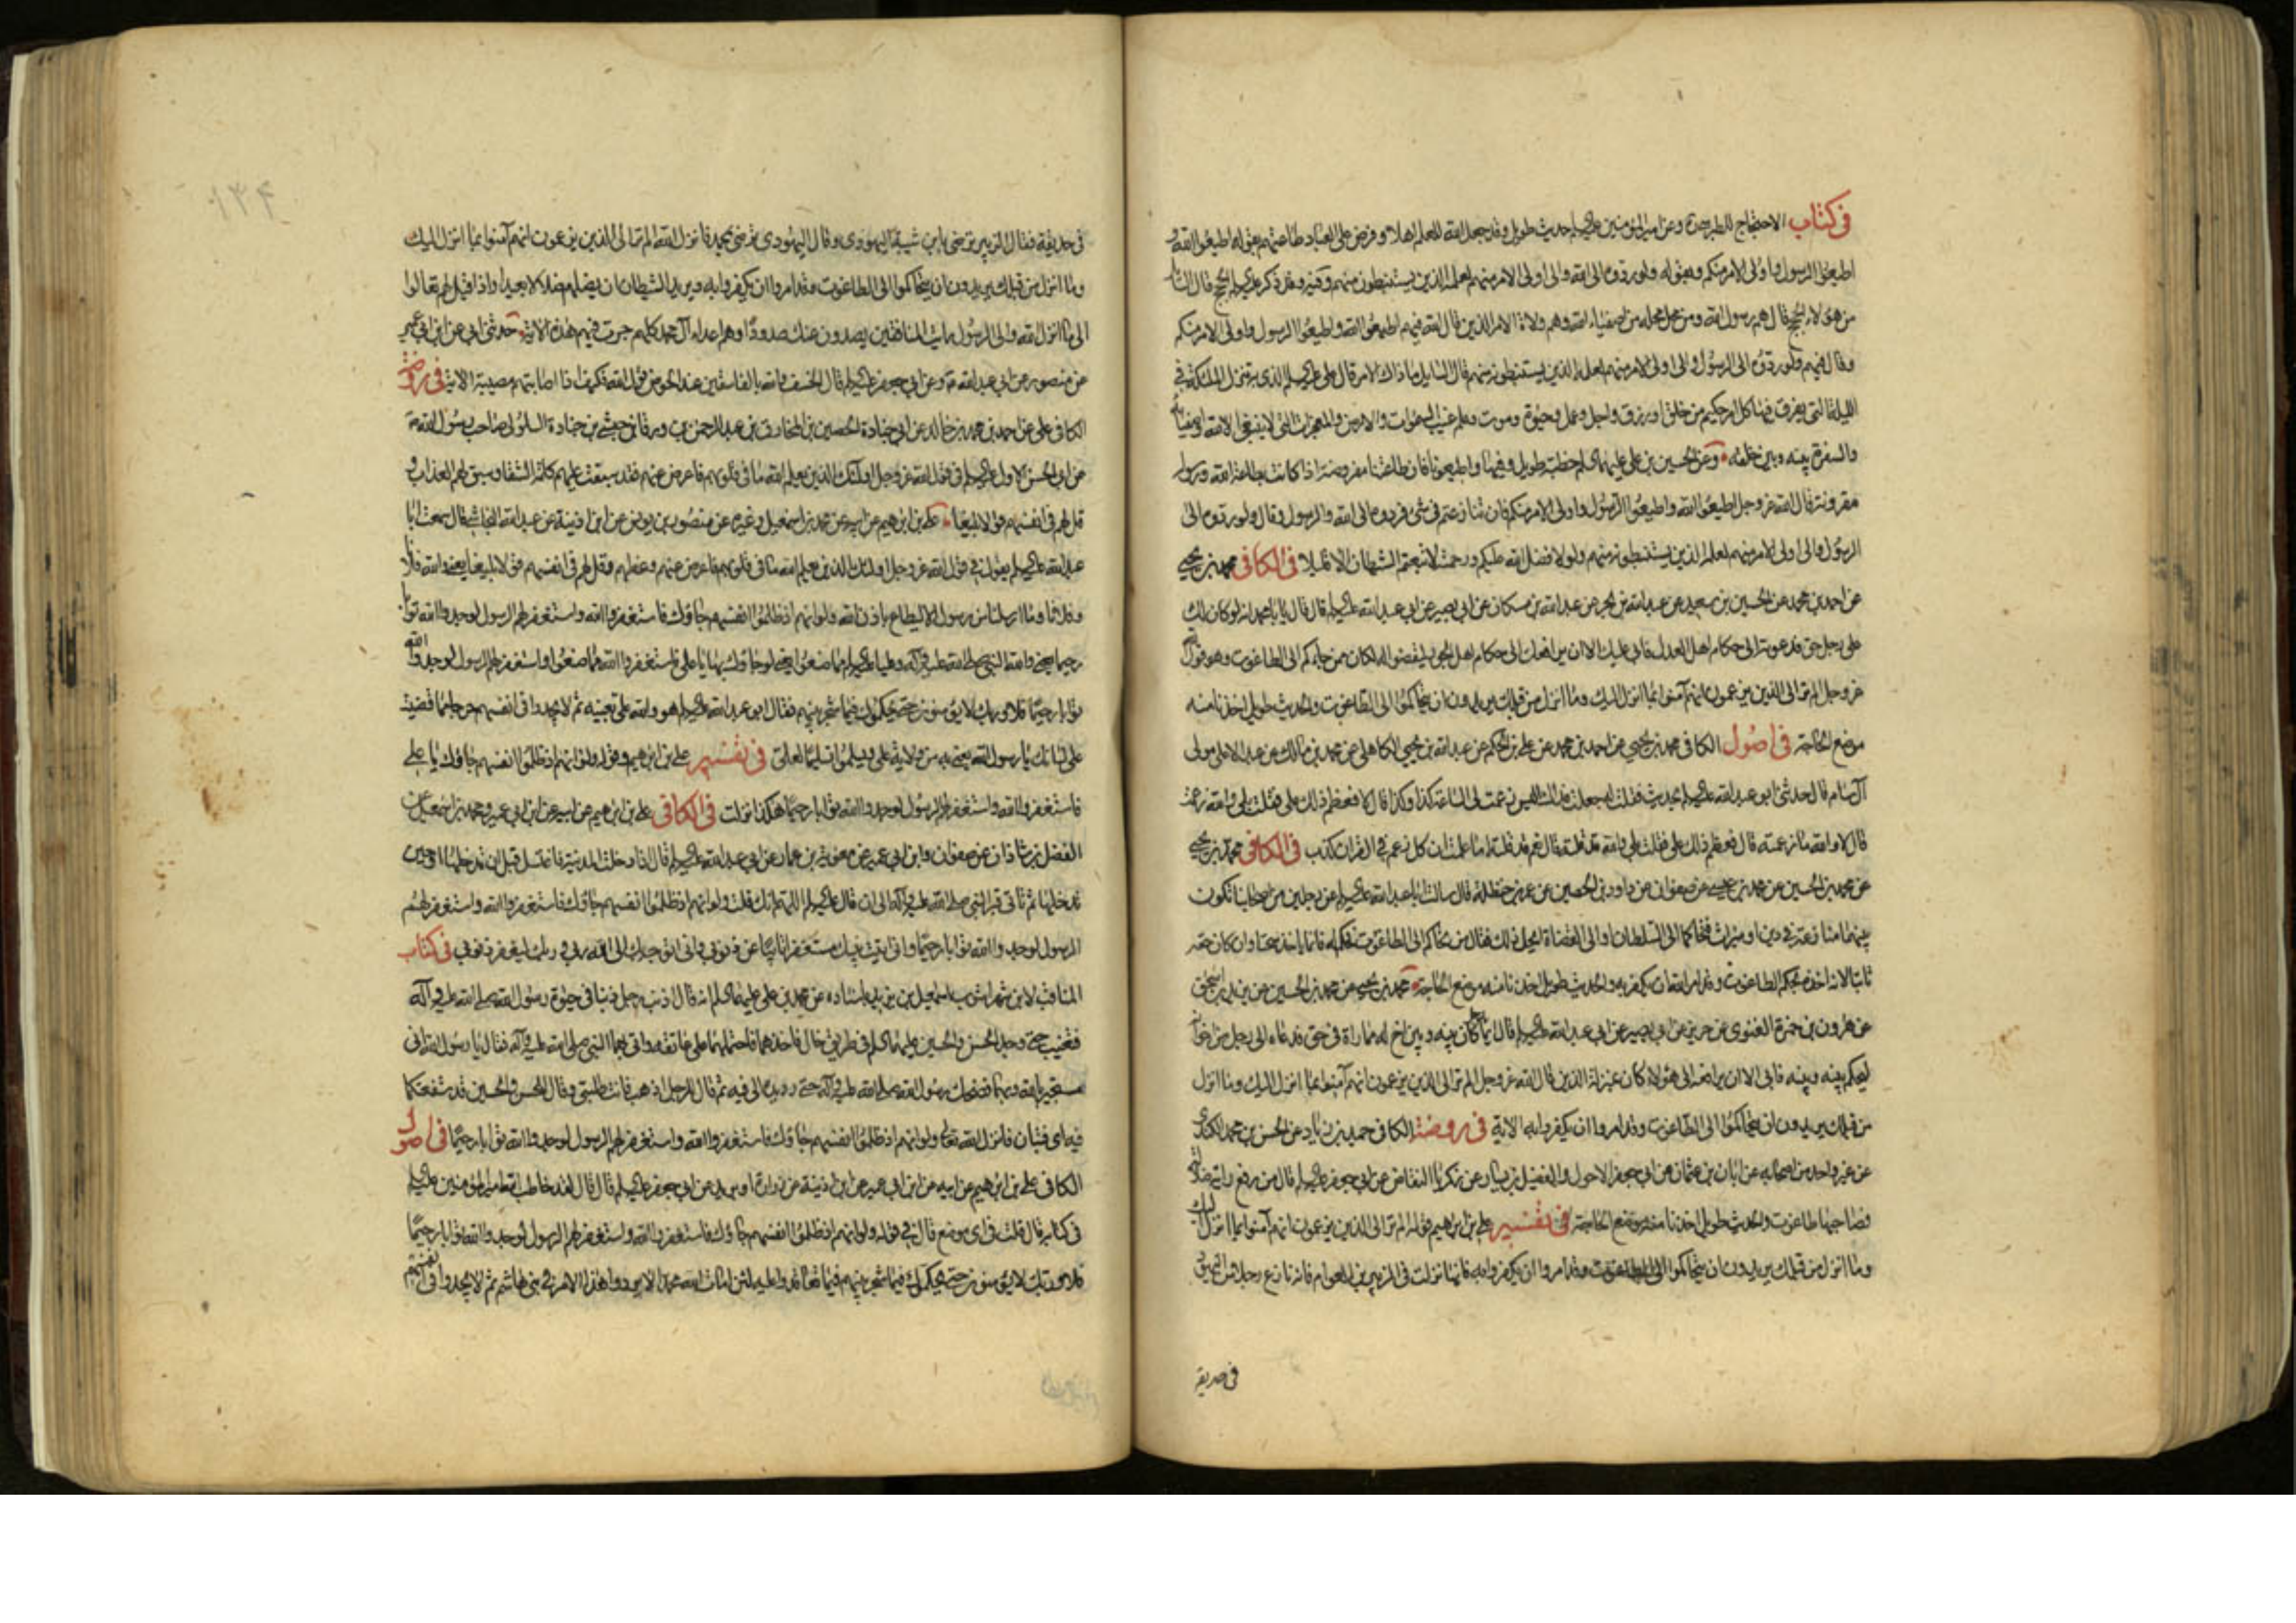 في كتاب الاحتجاج للطبرسي ره وعن امير المؤمنين عليه السلام حديث طويل وفيه وقد جعل الله للعلم اهلا وفرض على العباد طاعتهم بقوله اطيعوا الله و
اطيعوا الرسول واولى الامر منكم وبقوله ولو ردوه الى الله والى اولى الامر منهم لعلمه الذين يستنبطونه منهم وفيه وقد ذكر عليه السلم الحجج قال السائل
من هؤلاء الحجج قال هم رسول الله ومن حل محله من اصفياء الله وهم ولاة الامر الذين قال الله فيهم اطيعوا الله واطيعوا الرسول واولى الامر منكم
وقال فيهم ولو ردوه الى الرسول والى اولى الامر منهم لعلمه الذين يستنبطونه منهم قال السايل ما ذاك الامر قال على عليه السلم الذى به تنزل الملئكة في
الليلة التى يفرق فيها كل امر حكيم من خلق او رزق واجل وعمل وحيوة وموت وعلم غيب السموات والارض والمعجزات التى لا ينبغى الا لله واصفيائه
والسفرة بينه وبين خلقه وعن الحسين بن على عليهما السلم خطبة طويلة وفيها واطيعونا فان طاعتنا مفروضة اذا كانت بطاعة الله ورسوله
مقرونة قال الله عز وجل اطيعوا الله واطيعوا الرسول واولى الامر منكم فان تنازعتم في شئ فردوه الى الله والرسول وقال ولو ردوه الى
الرسول والى اولى الامر منهم لعلمه الذين يستنبطونه منهم ولولا فضل الله عليكم ورحمته لاتبعتم الشيطان الا قليلا في الكافى محمد بن يحيى
عن احمد بن محمد عن الحسين بن سعيد عن عبد الله بن بحر عن عبد الله بن مسكان عن ابى بصير عن ابى عبد الله عليه السلم قال قال يا با محمد انه لو كان لك
على رجل حق فدعوته الى حكام اهل العدل فابى عليك الا ان يرافعك الى حكام اهل الجور ليقضوا له لكان ممن حاكم الى الطاغوت وهو قول الله
عز وجل الم تر الى الذين يزعمون انهم آمنوا بما انزل اليك وما انزل من قبلك يريدون ان يتحاكموا الى الطاغوت والحديث طويل اخذنا منه
موضع الحاجة في اصول الكافى محمد بن يحيى عن احمد بن محمد عن على بن الحكم عن عبد الله بن يحيى الكاهلى عن محمد بن مالك عن عبد الاعلى مولى
آل سام قال حدثنى ابو عبد الله عليه السلم بحديث فقلت له جعلت فداك اليس زعمت لى الساعة كذا وكذا قال لا فعظم ذلك على فقلت بلى والله زعمت
قال لا والله ما زعمته قال فعظم ذلك على فقلت بلى والله قد قلته قال نعم قد قلته اما علمت ان كل زعم في القرآن كذب في الكافى محمد بن يحيى
عن محمد بن الحسين عن محمد بن عيسى عن صفوان عن داود بن الحصين عن عمر بن حنظلة قال سالت ابا عبد الله عليه السلم عن رجلين من اصحابنا تكون
بينهما منازعة في دين او ميراث فتحاكما الى السلطان او الى القضاة ايحل ذلك فقال من تحاكم الى الطاغوت فحكم له فانما ياخذ سحتا وان كان حقه
ثابتا لانه اخذه بحكم الطاغوت وقد امر الله ان يكفر به والحديث طويل اخذنا منه موضع الحاجة محمد بن يحيى عن محمد بن الحسين عن يزيد بن اسحق
عن هرون بن حمزة الغنوى عن حريز عن ابى بصير عن ابى عبد الله عليه السلم قال ايما رجل كان بينه وبين اخ له مماراة في حق فدعاه الى رجل من اخوانه
ليحكم بينه وبينه فابى الا ان يرافعه الى هؤلاء كان بمنزلة الذين قال الله عز وجل الم تر الى الذين يزعمون انهم آمنوا بما انزل اليك وما انزل
من قبلك يريدون ان يتحاكموا الى الطاغوت وقد امروا ان يكفروا به الاية في روضة الكافى حميد بن زياد عن الحسن بن محمد الكندى
عن غير واحد من اصحابه عن ابان بن عثمان عن ابى جعفر الاحول والفضيل بن يسار عن زكريا النقاض عن ابى جعفر عليه السلم قال من رفع راية ضلالة
فصاحبها طاغوت والحديث طويل اخذنا منه موضع الحاجة في تفسير على بن ابراهيم قوله الم تر الى الذين يزعمون انهم آمنوا بما انزل اليك
وما انزل من قبلك يريدون ان يتحاكموا الى الطاغوت وقد امروا ان يكفروا به فانها نزلت في الزبير بن العوام فانه نازع رجلا من اليهود
في حديقة
في حديقة فقال الزبير ترضى بابن شيبة اليهودى وقال اليهودى ترضى بمحمد فانزل الله الم تر الى الذين يزعمون انهم آمنوا بما انزل اليك
وما انزل من قبلك يريدون ان يتحاكموا الى الطاغوت وقد امروا ان يكفروا به ويريد الشيطان ان يضلهم ضلالا بعيدا واذا قيل لهم تعالوا
الى ما انزل الله والى الرسول رايت المنافقين يصدون عنك صدودا وهم اعداء آل محمد كلهم جرت فيهم هذه الاية حدثنى ابى عن ابن ابى عمير
عن منصور عن ابى عبد الله وعن ابى جعفر عليه السلم قال الخسف والله بالفاسقين عند الحوض قول الله فكيف اذا اصابتهم مصيبة الاية في روضة
الكافى على عن احمد بن محمد بن خالد عن ابى جنادة الحصين بن المخارق بن عبد الرحمن بن ورقا بن حبشى بن جنادة السلولى صاحب رسول الله
عن ابى الحسن الاول عليه السلم في قول الله عز وجل اولئك الذين يعلم الله ما في قلوبهم فاعرض عنهم فقد سبقت عليهم كلمة الشقاء وسبق لهم العذاب و
قل لهم في انفسهم قولا بليغا على بن ابراهيم عن ابيه عن محمد بن اسمعيل وغيره عن منصور بن يونس عن ابن اذينة عن عبد الله النجاشى قال سمعت ابا
عبد الله عليه السلم يقول في قول الله عز وجل اولئك الذين يعلم الله ما في قلوبهم فاعرض عنهم وعظهم وقل لهم في انفسهم قولا بليغا يعنى والله فلانا
وفلانا وما ارسلنا من رسول الا ليطاع باذن الله ولو انهم اذ ظلموا انفسهم جاؤك فاستغفروا الله واستغفر لهم الرسول لوجدوا الله توابا
رحيما يعنى والله النبى صلى الله عليه وآله وعليا عليه السلم مما صنعوا يعنى لو جاؤك بها يا على فاستغفروا الله مما صنعوا واستغفر لهم الرسول لوجدوا الله
توابا رحيما فلا وربك لا يؤمنون حتى يحكموك فيما شجر بينهم فقال ابو عبد الله عليه السلم هو والله على بعينه ثم لا يجدوا في انفسهم حرجا مما قضيت
على لسانك يا رسول الله يعنى به من ولاية على ويسلموا تسليما لعلى في تفسير على بن ابراهيم وقوله ولو انهم اذ ظلموا انفسهم جاؤك يا على
فاستغفروا الله واستغفر لهم الرسول لوجدوا الله توابا رحيما هكذا نزلت في الكافى على بن ابراهيم عن ابيه عن ابن ابى عمير ومحمد بن اسمعيل عن
الفضل بن شاذان عن صفوان وابن ابى عمير عن معوية بن عمار عن ابى عبد الله عليه السلم قال اذا دخلت المدينة فاغتسل قبل ان تدخلها او حين
تدخلها ثم تاتى قبر النبى صلى الله عليه وآله الى ان قال عليه السلم اللهم انك قلت ولو انهم اذ ظلموا انفسهم جاؤك فاستغفروا الله واستغفر لهم
الرسول لوجدوا الله توابا رحيما وانى اتيت نبيك مستغفرا تائبا من ذنوبى وانى اتوجه بك الى الله ربى وربك ليغفر ذنوبى في كتاب
المناقب لابن شهراشوب اسمعيل بن يزيد باسناده عن محمد بن على عليهما السلم انه قال اذنب رجل ذنبا في حيوة رسول الله صلى الله عليه وآله
فتغيب حتى وجد الحسن والحسين عليهما السلم في طريق خال فاخذهما فاحتملهما على عاتقه واتى بهما النبى صلى الله عليه وآله فقال يا رسول الله انى
مستجير بالله وبهما فضحك رسول الله صلى الله عليه وآله حتى رد يده الى فيه ثم قال للرجل اذهب فانت طليق وقال للحسن والحسين قد شفعتكما
فيه اى فتيان فانزل الله تعالى ولو انهم اذ ظلموا انفسهم جاؤك فاستغفروا الله واستغفر لهم الرسول لوجدوا الله توابا رحيما في اصول
الكافى على بن ابراهيم عن ابيه عن ابن ابى عمير عن ابن اذينة عن زرارة او بريد عن ابى جعفر عليه السلم قال قال لقد خاطب الله امير المؤمنين عليه السلم
في كتابه قال قلت في اى موضع قال في قوله ولو انهم اذ ظلموا انفسهم جاؤك فاستغفروا الله واستغفر لهم الرسول لوجدوا الله توابا رحيما
فلا وربك لا يؤمنون حتى يحكموك فيما شجر بينهم فيما تعاقدوا عليه لئن امات الله محمدا الا يردوا هذا الامر في بنى هاشم ثم لا يجدوا في انفسهم